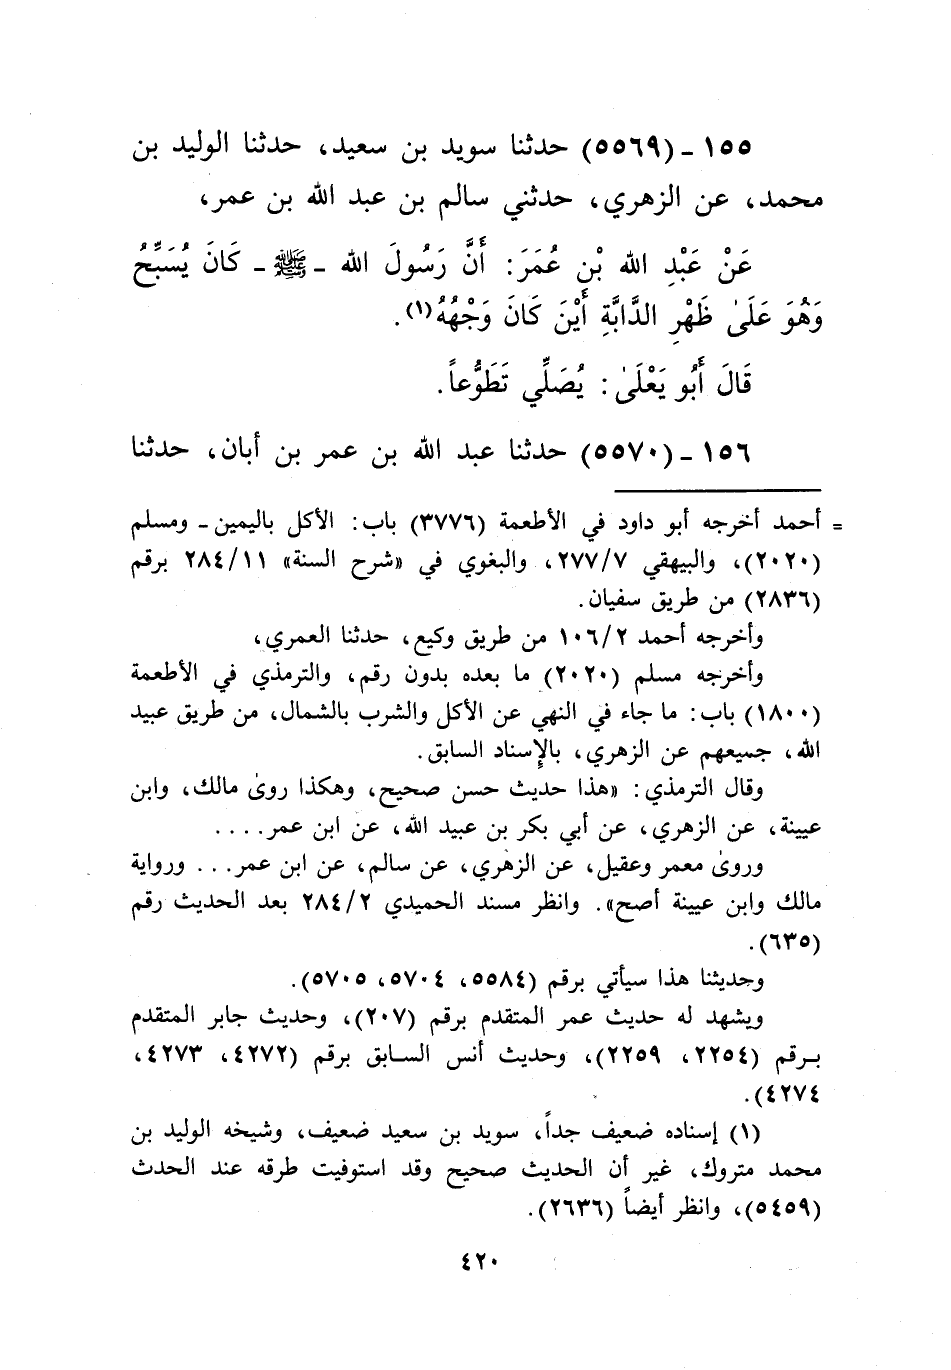 ١٥٥ - (٥٥٦٩) حدثنا سويد بن سعيد، حدثنا الوليد بن
محمد، عن الزهري، حدثني سالم بن عبد الله بن عمر،
عَنْ عَبْدِ الله بْنِ عُمَرَ: أَنَّ رَسُولَ الله - ﷺ - كَانَ يُسَبِّحُ
وَهُوَ عَلَىٰ ظَهْرِ الدَّابَّةِ أَيْنَ كَانَ وَجْهُهُ(١).
قَالَ أَبُو يَعْلَىٰ: يُصَلِّي تَطَوُّعاً.
١٥٦ - (٥٥٧٠) حدثنا عبد الله بن عمر بن أبان، حدثنا
= أحمد أخرجه أبو داود في الأطعمة (٣٧٧٦) باب: الأكل باليمين - ومسلم
(٢٠٢٠)، والبيهقي ٢٧٧/٧، والبغوي في «شرح السنة» ٢٨٤/١١ برقم
(٢٨٣٦) من طريق سفيان.
وأخرجه أحمد ١٠٦/٢ من طريق وكيع، حدثنا العمري،
وأخرجه مسلم (٢٠٢٠) ما بعده بدون رقم، والترمذي في الأطعمة
(١٨٠٠) باب: ما جاء في النهي عن الأكل والشرب بالشمال، من طريق عبيد
الله، جميعهم عن الزهري، بالإسناد السابق.
وقال الترمذي: «هذا حديث حسن صحيح، وهكذا روىٰ مالك، وابن
عيينة، عن الزهري، عن أبي بكر بن عبيد الله، عن ابن عمر....
وروىٰ معمر وعقيل، عن الزهري، عن سالم، عن ابن عمر... ورواية
مالك وابن عيينة أصح». وانظر مسند الحميدي ٢٨٤/٢ بعد الحديث رقم
(٦٣٥).
وحديثنا هذا سيأتي برقم (٥٥٨٤، ٥٧٠٤، ٥٧٠٥).
ويشهد له حديث عمر المتقدم برقم (٢٠٧)، وحديث جابر المتقدم
برقم (٢٢٥٤، ٢٢٥٩)، وحديث أنس السابق برقم (٤٢٧٢، ٤٢٧٣،
٤٢٧٤).
(١) إسناده ضعيف جداً، سويد بن سعيد ضعيف، وشيخه الوليد بن
محمد متروك، غير أن الحديث صحيح وقد استوفيت طرقه عند الحدث
(٥٤٥٩)، وانظر أيضاً (٢٦٣٦).
٤٢٠